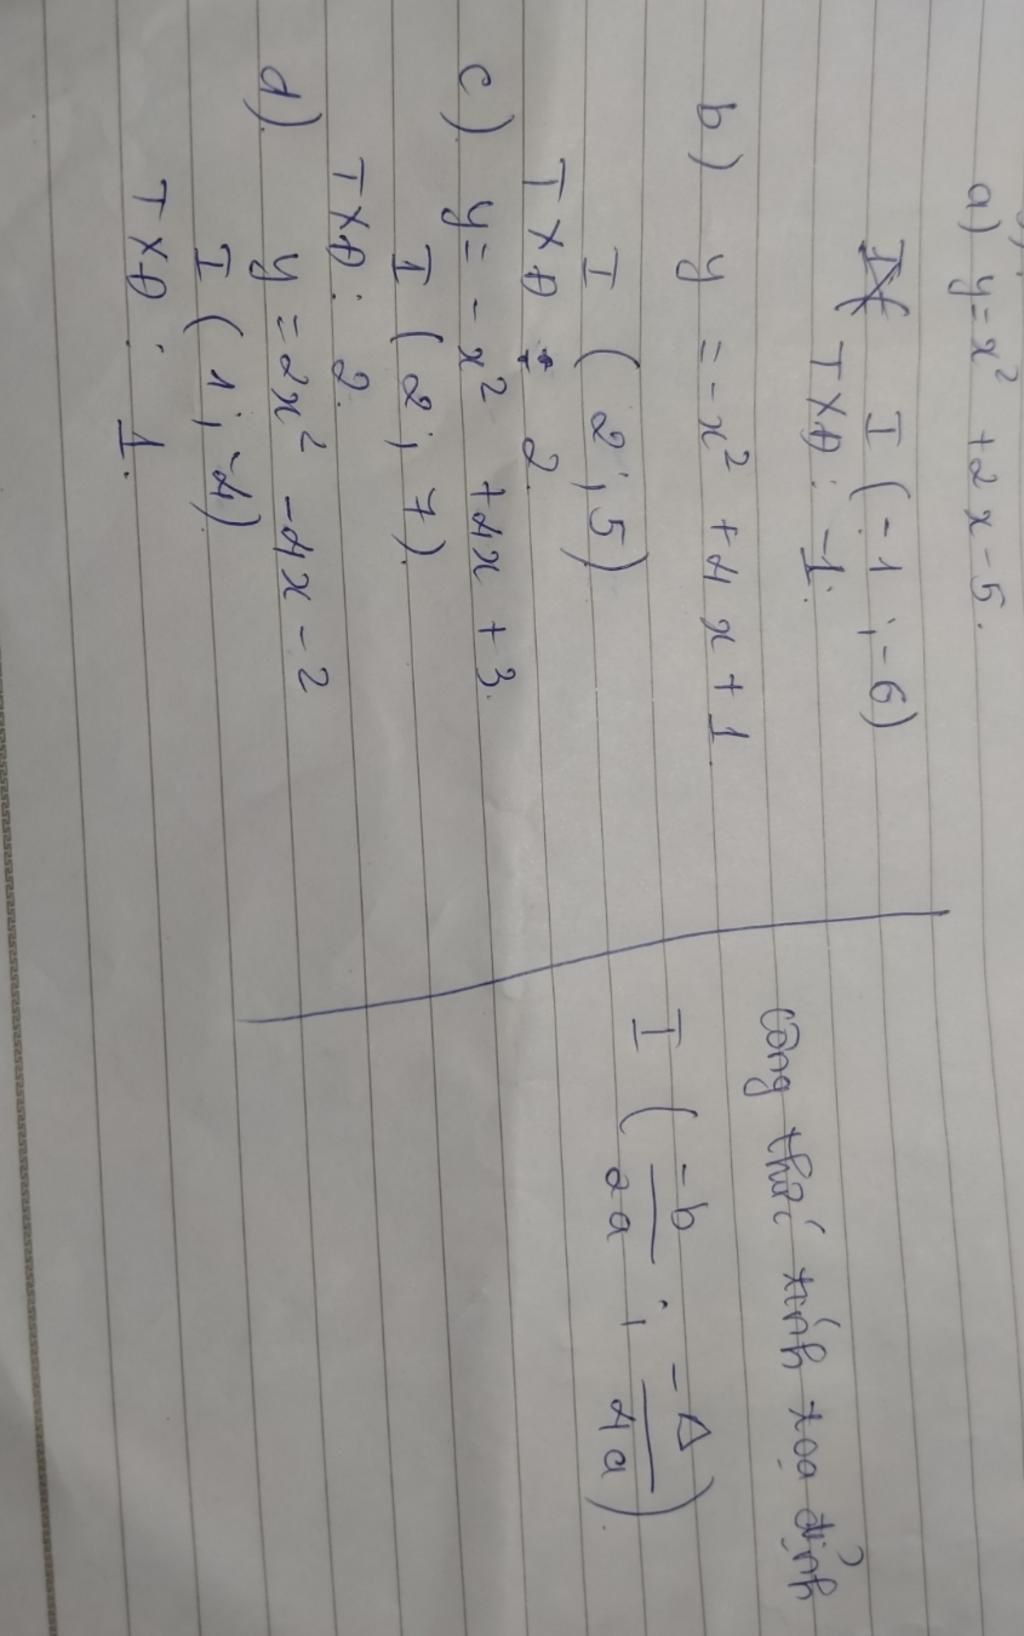 a) y=x² +2x-5.
I (-1 ;-6)
TXĐ: -1.
b) y = -x² +4x+1
I ( 2 ; 5)
TXĐ : 2.
c) y= -x² +4x +3.
I ( 2 ; 7)
TXĐ: 2.
d) y =2x² -4x -2
I ( 1 ; -4)
TXĐ : 1.
công thức tính toạ đỉnh
I ( -b/2a ; -Δ/4a )